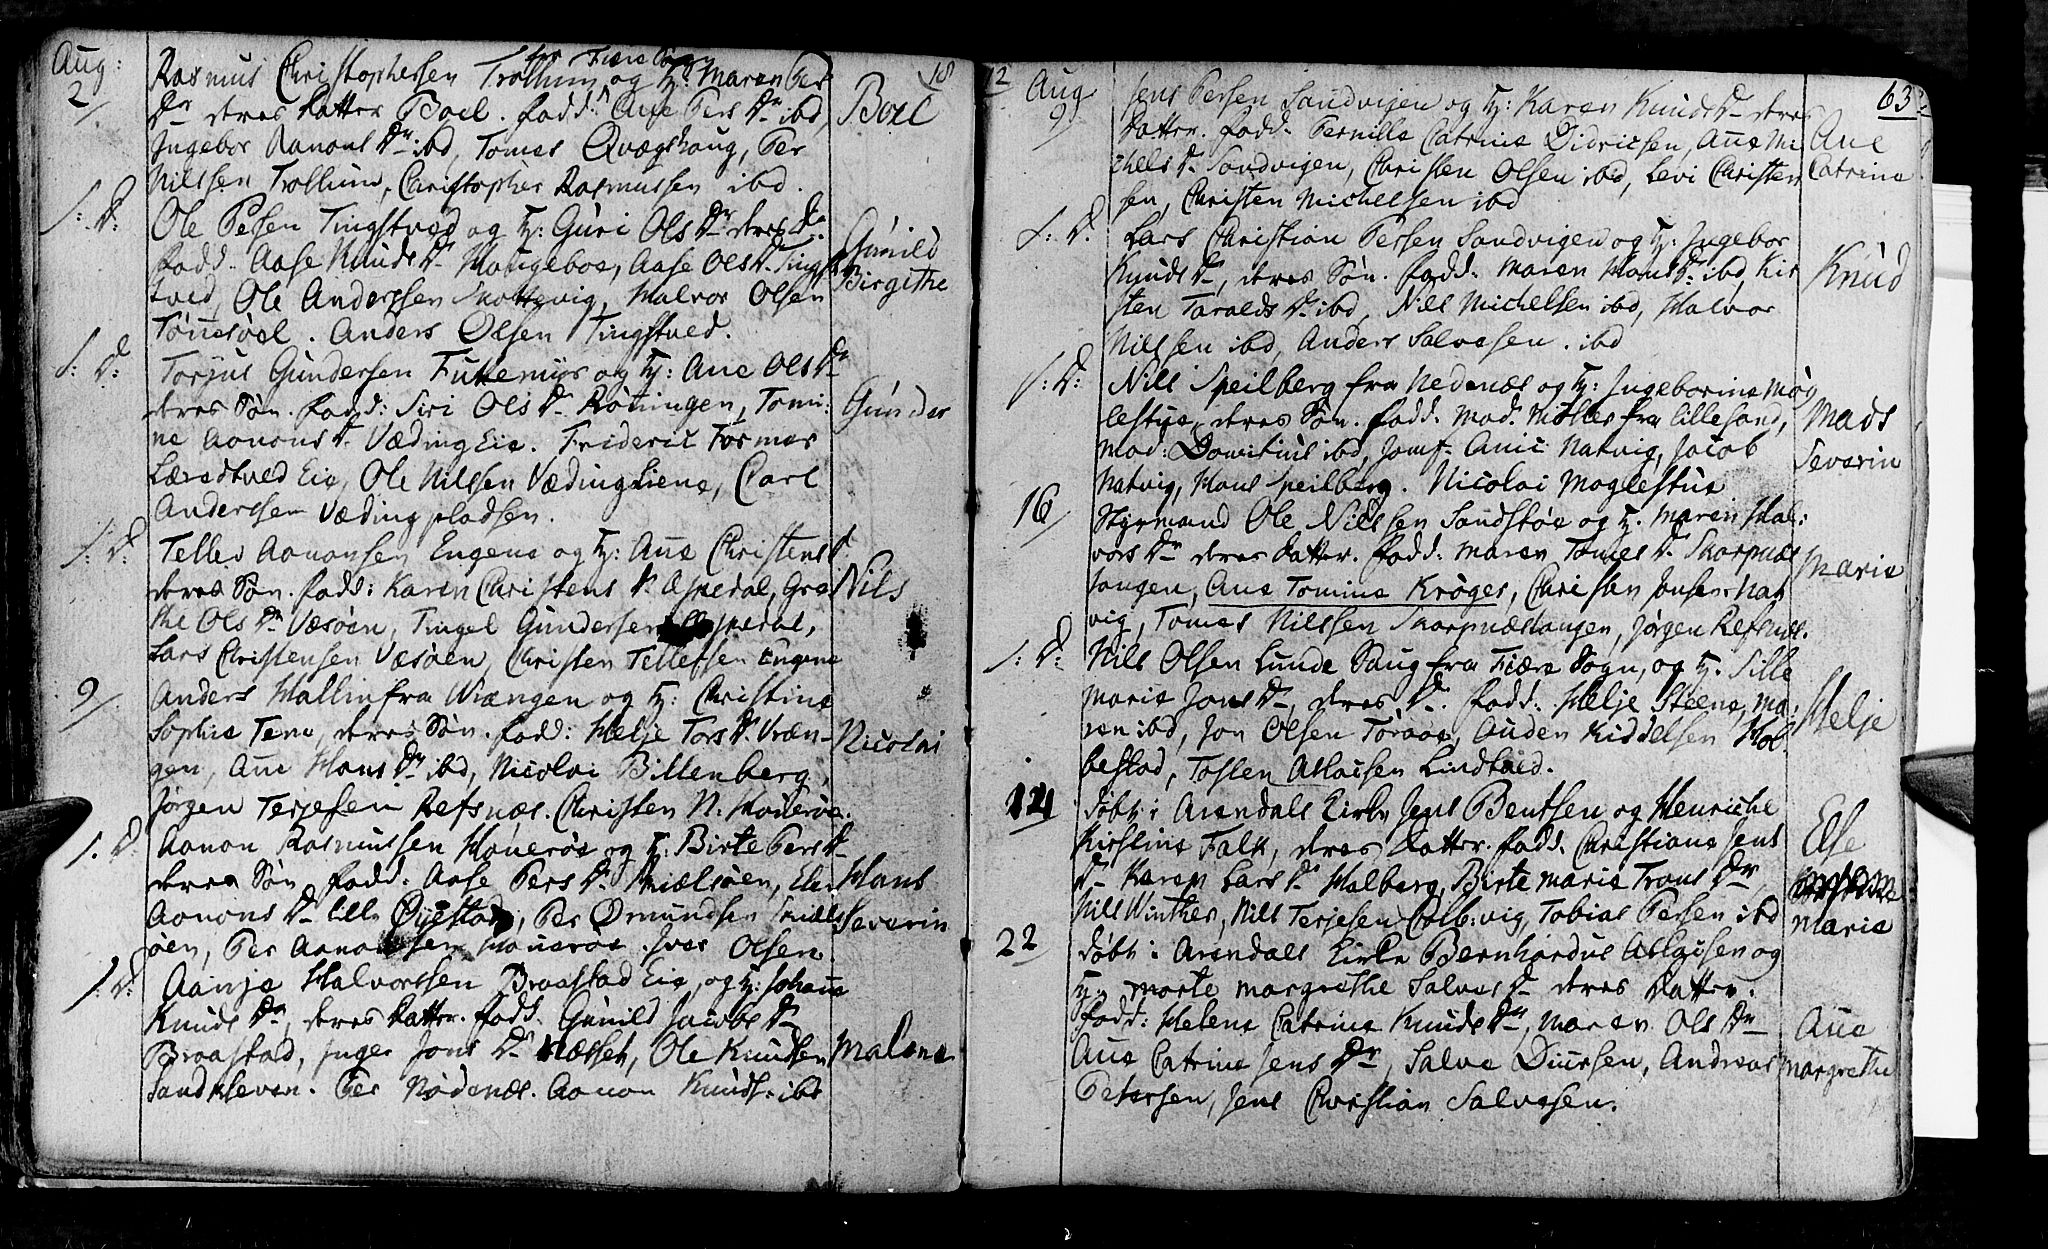 18
Aug:
2/.
fra Fiære Sogn
Rasmus Christophersen Trollum og H: Maren Pers
Dr deres Datter Boel. fadd: Ane Pers Dr ibd,
Boel
Ingebor Aanons Dr ibd, Tomas Qvægshaug, Per
Nilssen Trollum, Christopher Rasmussen ibd.
S: D:
Ole Persen Tingstved og H: Guri Ols Dr deres Dr.
Gunild
fadd. Aase Knuds Dr Haugeboe, Aase Ols Dr Tingst
Birgithe
tved, Ole Anderssen Skottevig, Halvor Olsen
Tønnesøel. Anders Olsen Tingstved.
S: D:
Torjus Gundersen Fukkemyr og H: Ane Ols Dr
deres Søn. fadd: Siri Ols Dr Røningen, Tomi:
Gunder
ne Aanons Dr Væding Eie. Frideric Tormer
Læredtved Eie, Ole Nilssen Væding Liene, Carl
Anderssen Væding pladsen.
S: D:
Tellev Aanonsen Engene og H: Ane Christens Dr
deres Søn. fadd: Karen Christens Dr Aspedal, Gre
Nils
the Ols Dr Væsøen, Tingel Gundersen Aspedal,
Lars Christensen Væsøen, Christen Tellefsen Engene
9/.
Anders Hallin fra Wrængen og H: Christine
Sophie Tene, deres Søn. fadd: Helje Tors Dr Vræn-
Nicolai
gen, Ane Hans Dr ibd, Nicolai Billenberg,
Jørgen Terjesen Refsnæs. Christen N: Houerøe.
S. D:
Aanon Rasmussen Houerøe og H: Birte Pers Dr
deres Søn fadd: Aase Pers Dr Mielsøen, Elen
Hans
Aanons Dr lille Øyestad, Per Ømundsen Mieels
Severin
øen, Per Aanonssen Houerøe. Iver Olsen.
S: D:
Aanje Halvorssen Braastad Eie, og H: Johane
Knuds Dr, deres Datter. fadd. Gunild Jacobs Dr
Braastad, Inger Jons Dr Næsset, Ole Knudsen
Malene
Sandkleven. Per Rødenæs. Aanon Knuds: ibd
12
63
Aug
9/
Jens Persen Sandvigen og H: Karen Knuds Dr deres
Datter. fadd. Pernille Catrine Didricsen, Ane Mi
Ane
chels Dr Sandvigen, Christen Olsen ibd, Levi Christen
Catrine
sen, Christen Michelsen ibd
S: D.
Lars Christian Persen Sandvigen og H: Ingebor
Knuds Dr, deres Søn. fadd: Maren Hans Dr: ibd, Kir
Knud
sten Taralds Dr ibd, Nils Michelsen ibd, Halvor
Nilssen ibd, Anders Salvesen. ibd
S: D:
Nils Speilberg fra Nedenæs og H: Ingeborine Møg
lestue, deres Søn. fadd. Mad. Møller fra Lillesand,
Mads
Mad: Domitius ibd, Jomf. Anne Natvig, Jacob
Severin
Natvig, Hans Speilberg. Nicolai Møglestue
16/
Styrmand Ole Nilssen Sandstøe og H. Maren Hal:
vors Dr deres Datter. fadd: Maren Tomes Dr Skarpnæs
Marie
tangen, Ane Tomine Krøger, Christen Jensen Nat
vig, Tomas Nilssen Skarpnæstangen, Jørgen Refsnæs.
S: D:
Nils Olsen Lunde Saug fra Fiære Sogn, og H. Sille
Marie Jons Dr, deres Dr. fadd. Helje Steene, Ma:
Helje
ren ibd, Jon Olsen Toraae, Auden Kiddelsen Hol-
bestad, Toslen Aslacsen Lindtved.
21
døbt i Arendals Kirke Jens Bentsen og Henriche
Else
Kirstine Falk, deres Datter. fadd. Christiane Jens
Dr Karen Lars Dr Halberg, Birte Marie Trons Dr,
Nils Winther, Nils Terjesen Colb:vig, Tobias Persen ibd
Marie
22
døbt i Arendals Kirke Bernhardus Aslacsen og
H. Marte Margrethe Salves Dr deres Datter.
fadd: Helene Catrine Knuds Dr, Maren Ols Dr
Ane
Ane Catrine Jens Dr, Salve Duusen, Andreas
Margrethe
Petersen, Jens Christian Salvesen.